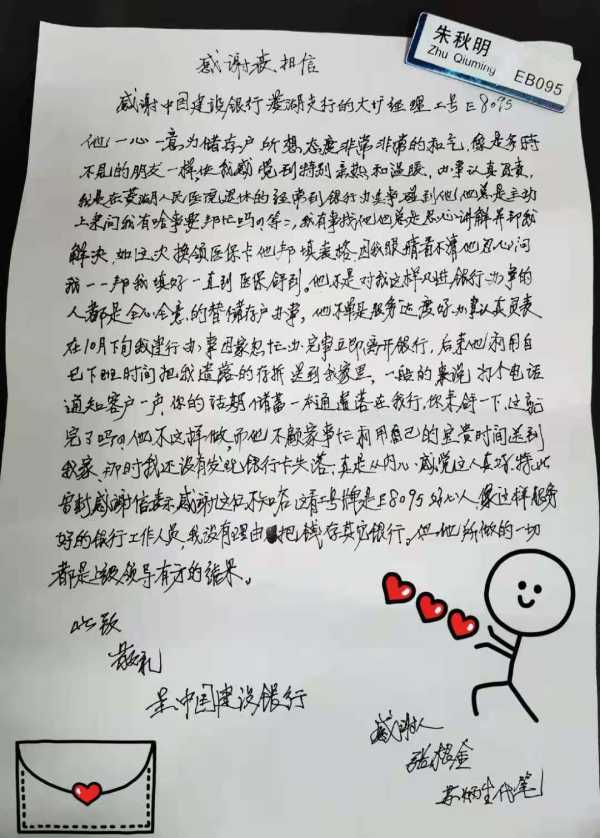 朱秋明
Zhu Qiuming EB095
感谢表相信
感谢中国建设银行菱湖支行的大扩经理工号E8095
他一心一意为储存户所想态度非常非常的和气，像是多时
不见的朋友一样使我感觉到特别亲热和温暖，办事认真负责，
我是在菱湖人民医院退休的经常到银行办点事碰到他他总是主动
上来问我有啥事要帮忙吗？等，我有事找他他总是忍心讲解并帮我
解决，如这次换领医保卡他帮填表格因我眼睛看不清他忍心问
我一一帮我填好一直到医保领到。他不是对我这样凡进银行办事的
人都是全心全意的替储存户办事，他不单是服务态度好办事认真负责
在10月下旬我建行办事因家忽忙办完事立即离开银行，后来他利用自
己下班时间把我遗落的存折送到我家里，一般的来说打个电话
通知客户一声，你的活期储蓄一本通遗落在我行，你来领一下，这就
完了吗？他不这样做，而他不顾家事忙利用自己的宝贵时间送到
我家，那时我还没有发现银行卡失落，真是从内心感觉这人真好，特此
写封感谢信表示感谢这位不知名只看工号牌是E8095好心人，像这样服务
好的银行工作人员，我没有理由把钱存其它银行。但他所做的一切
都是上级领导有方的结果。
此致
敬礼
呈中国建设银行
感谢人
张根金
代笔